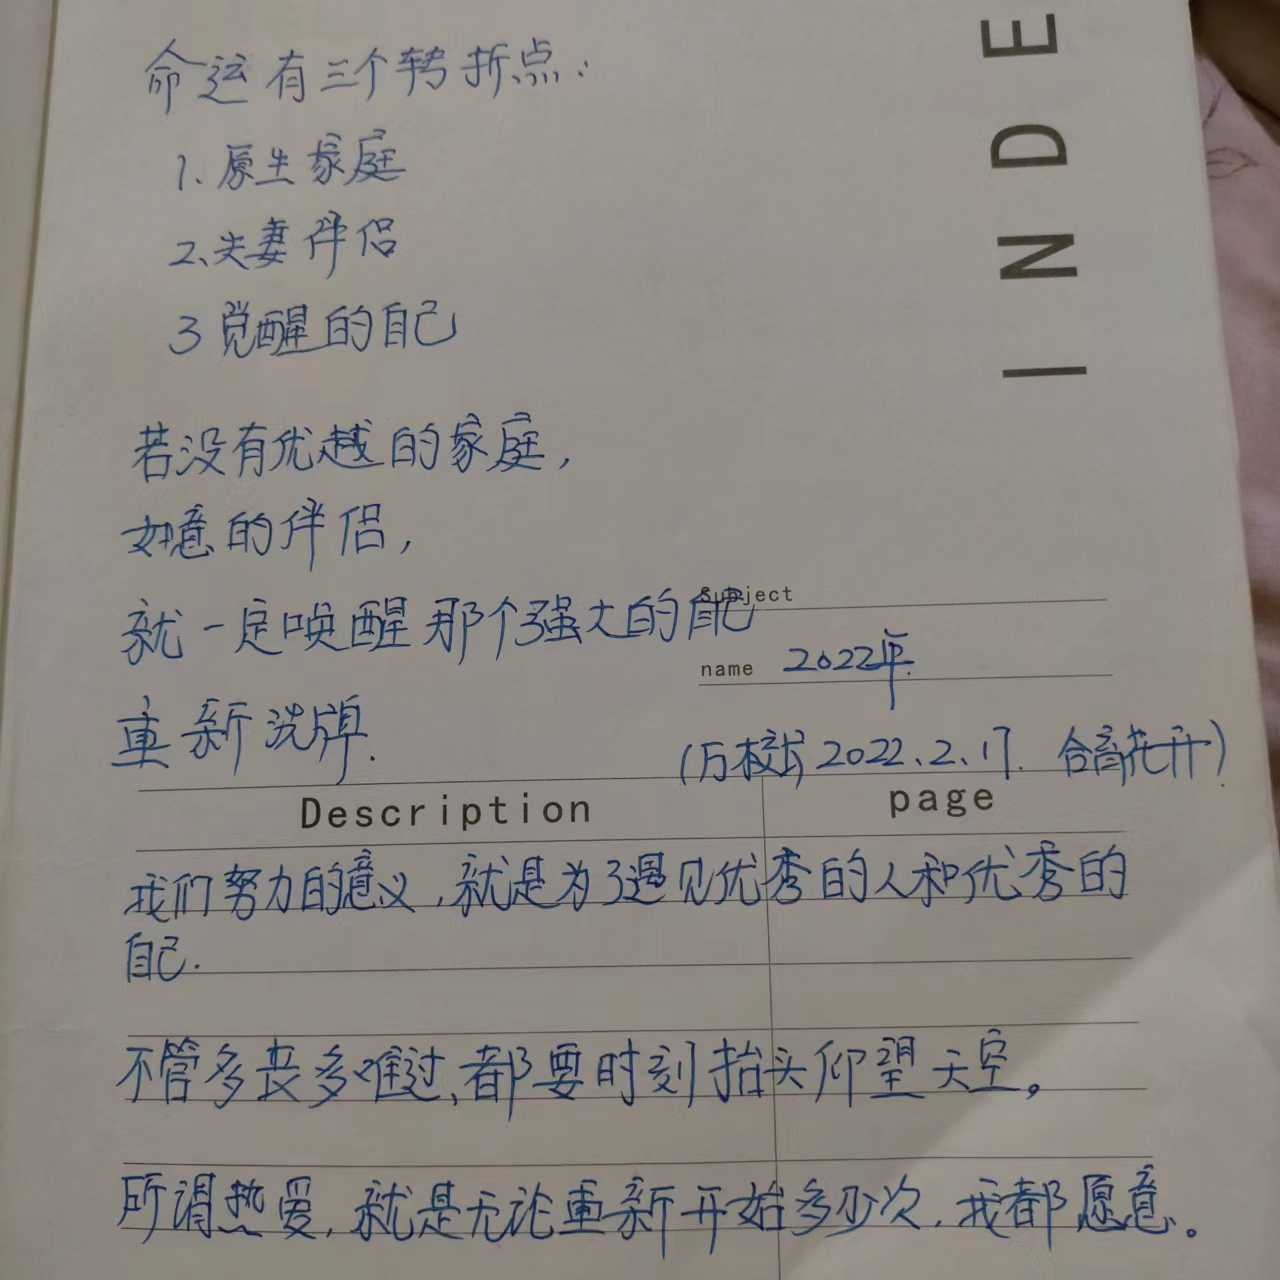 INDE
命运有三个转折点:
1、原生家庭
2、夫妻伴侣
3觉醒的自己
若没有优越的家庭,
如意的伴侣,
就一定唤醒那个强大的自己
Subject
name 2022年.
重新洗牌.
2022、2、17.
Description page
我们努力的意义,就是为了遇见优秀的人和优秀的
自己.
不管多丧多难过,都要时刻抬头仰望天空。
所谓热爱,就是无论重新开始多少次,我都愿意。